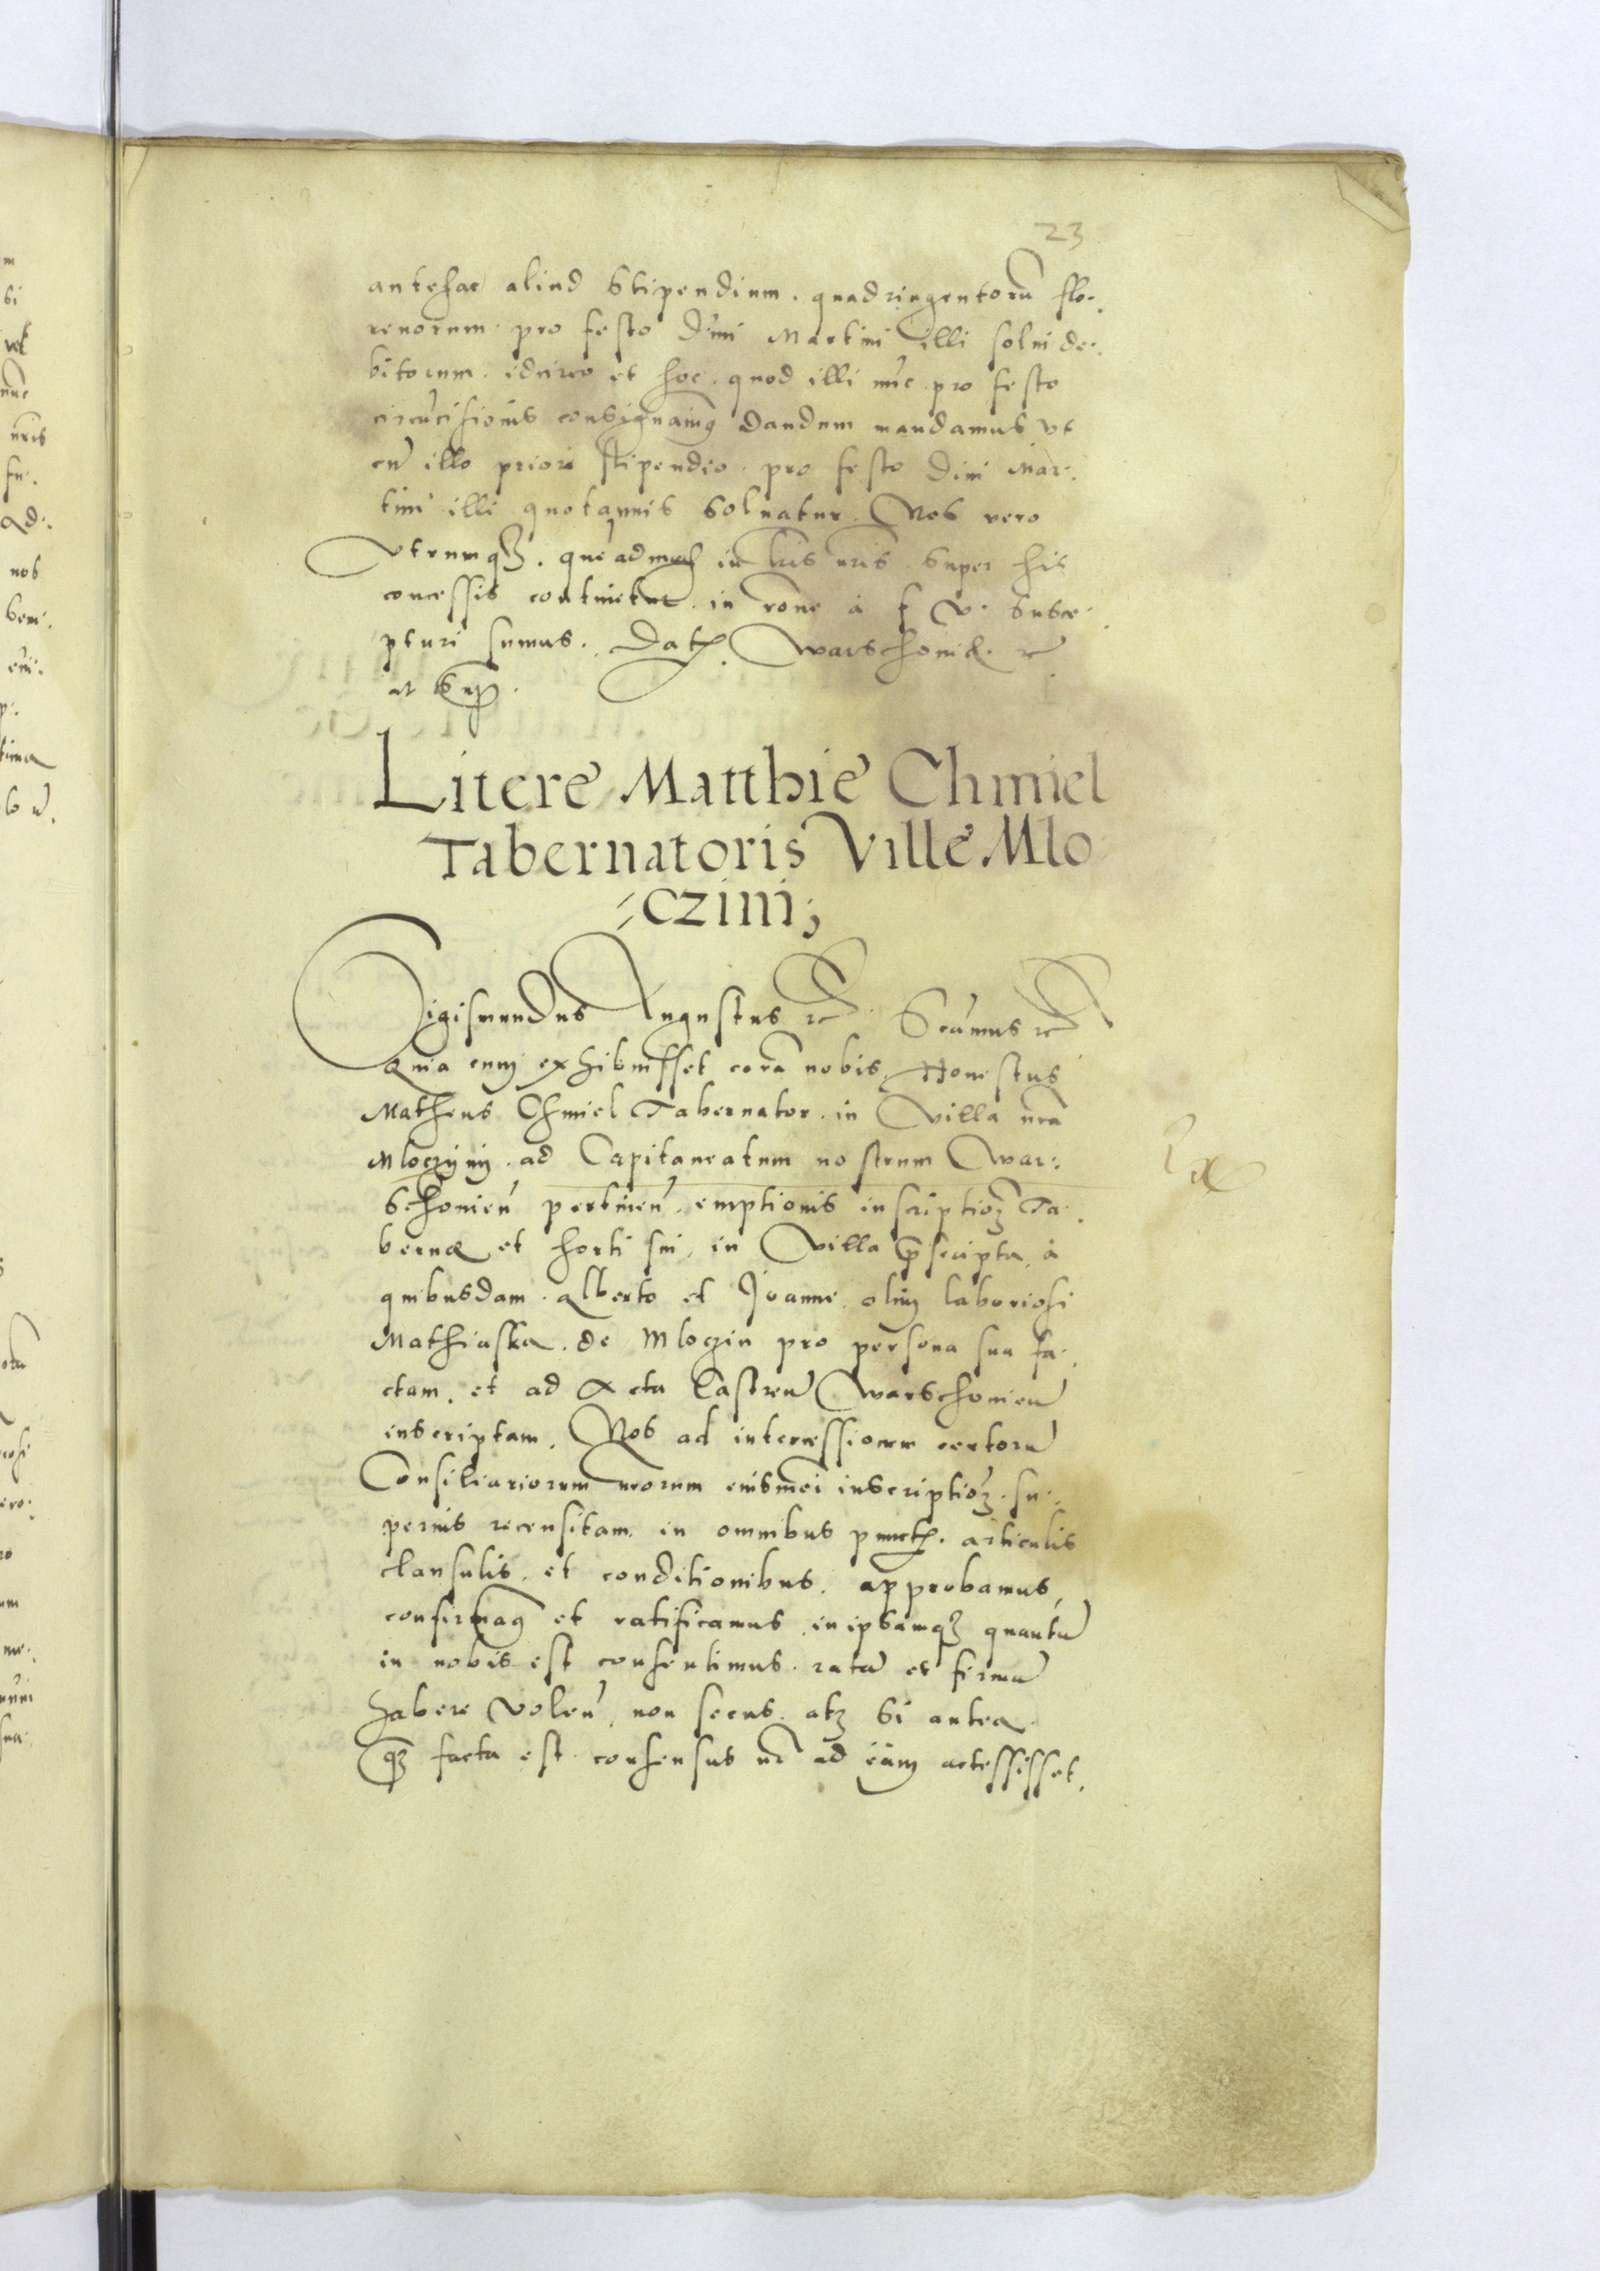 23
antehac aliud stipendium quadringentorũ flo-
renorum pro festo Diui Martini illi solui de-
bitorum idcirco et hoc quod illi nũc pro festo
circũcisionis consignamꝰ dandum mandamus vt
cũ illo priori stipendio pro festo Diui Mar-
tini illi quotannis soluatur. Nos vero
vtrumqꝫ quẽadmodũ in lris nris super his
concessis continetur in rone à f v susce-
pturi sumus. Datꝭ Warschouiæ rc̃
vt sup
Litere Matthie Chmiel
Tabernatoris Ville Mlo
=czini;
Sigismundus Augustus rc̃ Scũmus rc̃
Quia cum exhibuisset corã nobis Honestus
Matheus Chmiel Tabernator in Villa nrã
Mloczyny ad Capitaneatum nostrum War-
schouieñ pertineñ emptionis inscriptioꝫ Ta-
bernæ et horti sui in Villa pscripta à
quibusdam Alberto et Joanne olim laboriosi
Mathiaska de Mloczin pro persona sua fa-
ctam et ad Acta Castreñ Warschouieñ
inscriptam. Nos ad intercessionem certorũ
Consiliariorum nrorum eiusmõi inscriptioꝫ su-
perius recensitam in omnibus punctꝭ articulis
clausulis et conditionibus approbamus
confirmamꝰ et ratificamus in ipsamqꝫ quantũ
in nobis est consentimus ratã et firmã
habere voleñ non secus atqꝫ si antea
qꝫ facta est consensus nr ad eam accessisset.